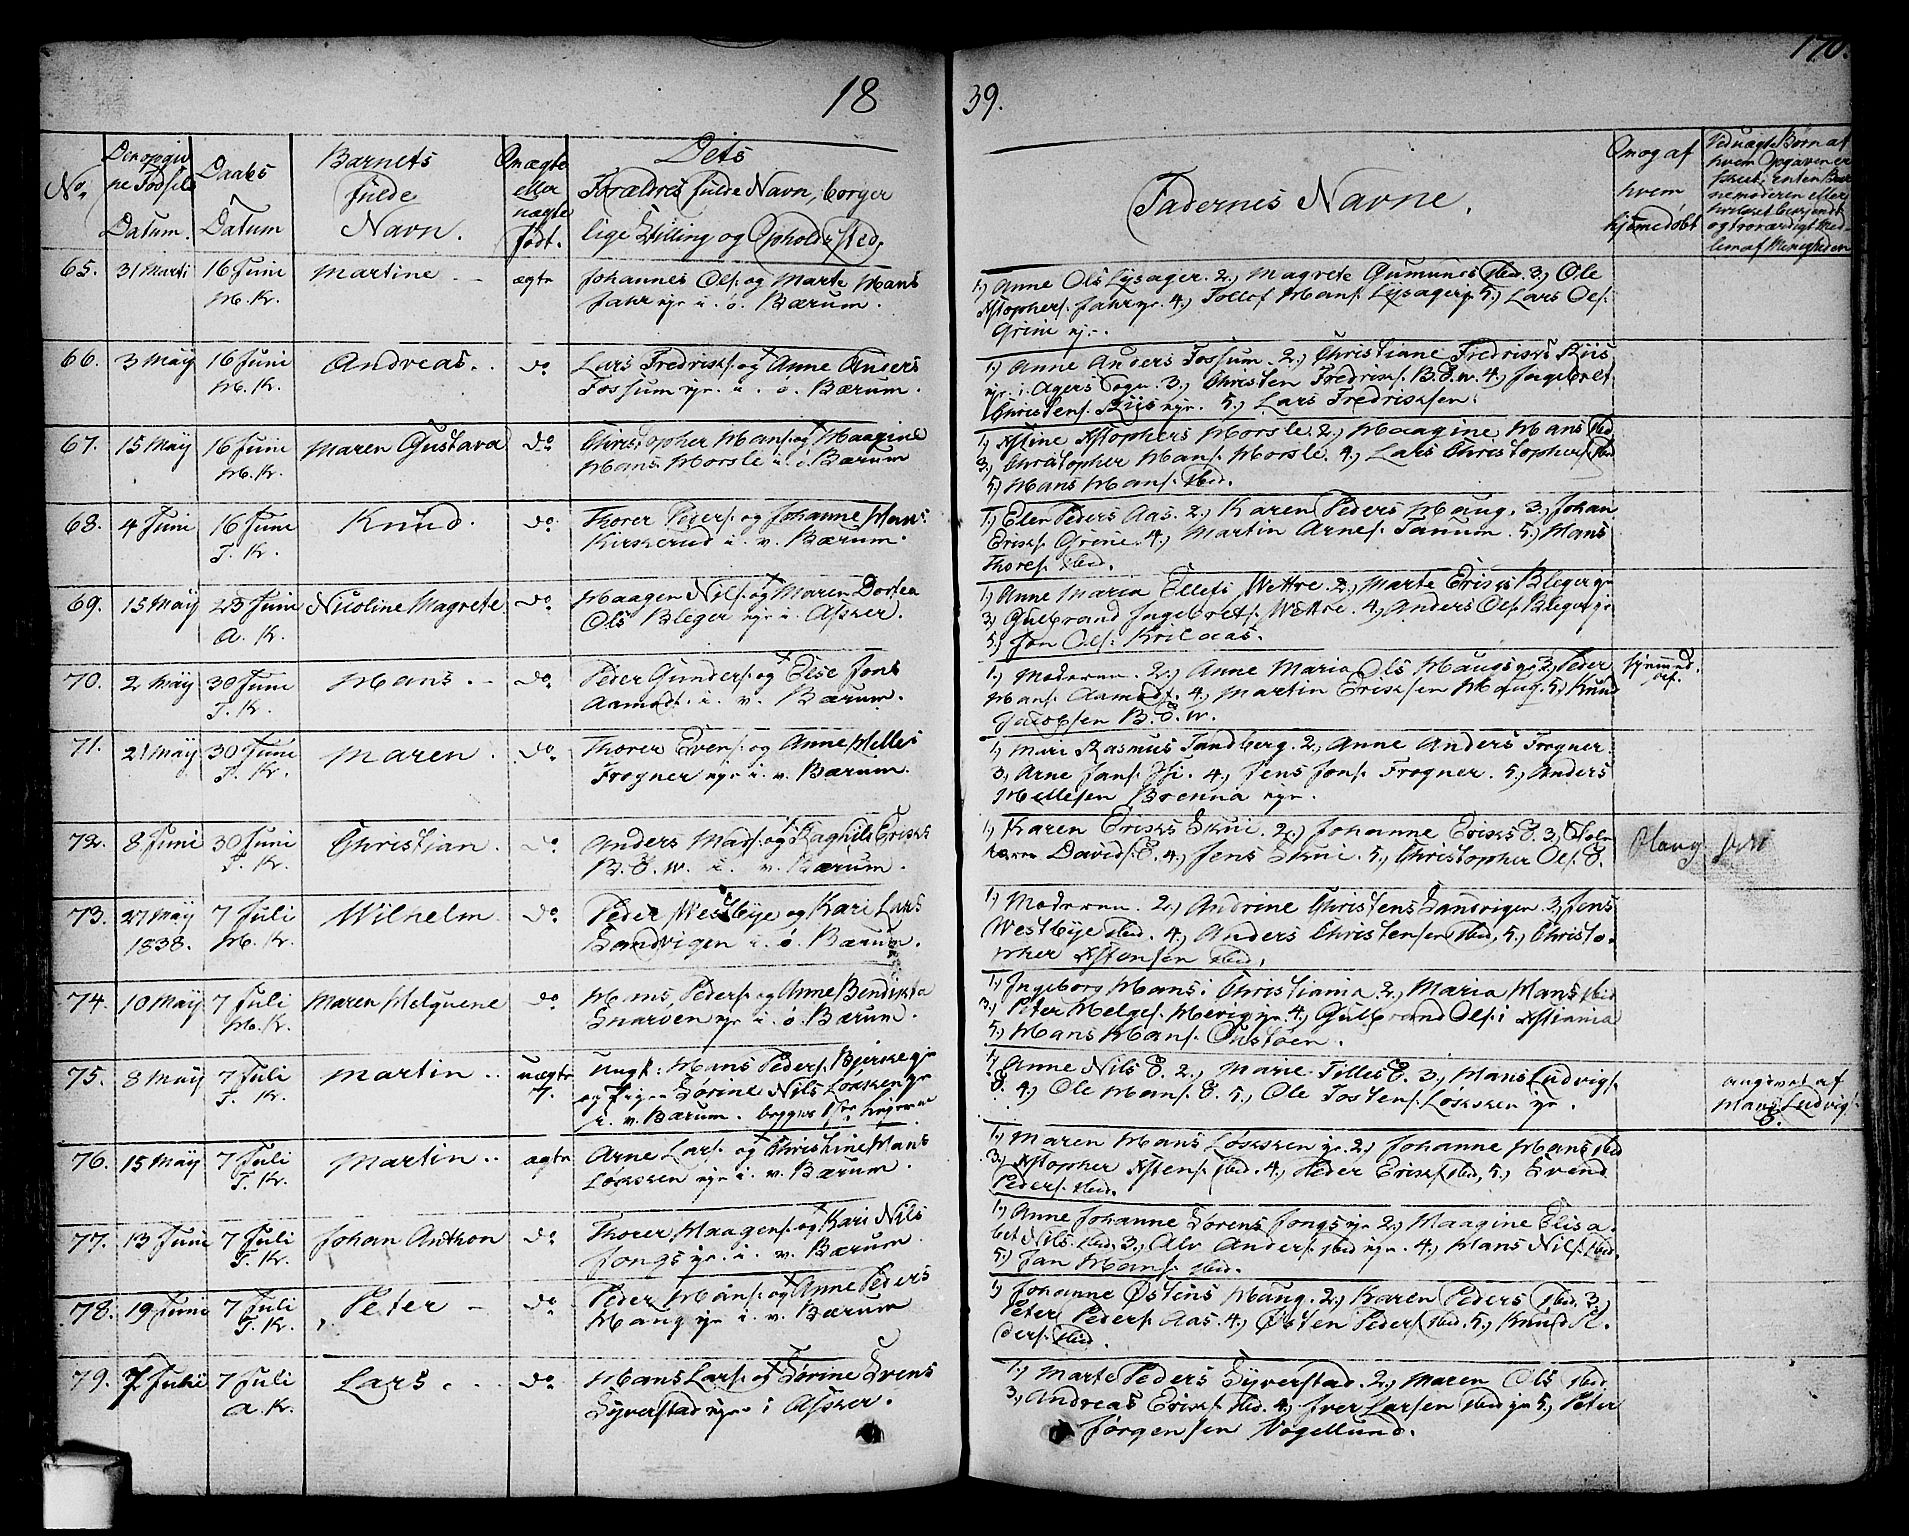 170.
18 39.
No.
Den opgivne Fødsels Datum.
Daabs Datum
Barnets fulde Navn.
Om ægte eller uægte født.
Dets Forældres fulde Navn, borgerlige Stilling og Opholdssted,
Fadernes Navne.
Om og af hvem hjemedøbt
Ved uægte Børn af hvem Opgaven er skeet, Enten Barnemoderen eller
og troværdigt Medlem af Menigheden
65. 31 Marti 16 Juni Martine ægte Johannes Ols. og Marte Hans
H. Kr. Jahr eje i. ø. Bærum.
1, Anne Ols Lysager. 2, Magrete Gumunds Ibid. 3, Ole
Xstophers. Jahr eje. 4, Tollof Hans. Lysager eje 5, Lars Ols.
Grini eje.
66. 3 Maÿ 16 Juni Andreas. do Lars Fredriks. og Anne Anders
H. Kr. Fossum eje. i. ø. Bærum.
1, Anne Anders Fossum. 2, Christiane Fredriks Riis
eje. i Agers Sogn. 3, Christen Fredriks. B. E. w. 4, Ingebret
Christens. Riis eje. 5, Lars Fredriksen.
67. 15 Maÿ 16 Juni Maren Gustava do Christopher Hans. og Haagine
H. Kr. Hans Horsle i. ø. Bærum
1, Xstine Xstophers Horsle. 2, Haagine Hans Ibid
3, Christopher Hans. Horsle. 4, Lars Christophers. Ibid
5, Hans Hans. Ibid.
68. 4 Juni 16 Juni Knud. do. Thorer Peders. og Johanne Hans
T. Kr. Kirkerud i. v. Bærum.
1, Elen Peders Aas. 2, Karen Peders Haug. 3, Johan
Eriks. Grini. 4, Martin Arnes. Tanum. 5, Hans
Thores. Ibid.
69. 15 Maÿ 23 Juni Nicoline Magrete do Haagen Nils. og Maren Dortea
A. Kr. Ols Bleger eje i. Asker.
1, Anne Maria Ellefs Wettre. 2, Marte Eriks Bleger eje
3, Gulbrand Ingebrets. Wettre. 4, Anders Ols. Bleger eje
5, Jon Ols.
70. 2 Maÿ 30 Juni Hans. do Peder Gunders. og Else Jons
T. Kr. Aamodt. i. v. Bærum.
1, Moderen. 2, Anne Maria Ols Haugs eje 3, Peder
Hans. Aamodt. 4, Martin Eriksen Haug. 5, Knud
Jacobsen B. E. w.
71. 21 Maÿ 30 Juni Maren. do. Thorer Evens. og Anne Helles
T. Kr. Frogner eje i. v. Bærum.
1, Mari Rasmus Tandberg. 2, Anne Anders Frogner.
3, Arne Jans. 4, Jens Jons. Frogner. 5, Anders
Hellesen Brenna eje.
72. 8 Juni 30 Juni Christian. do Anders Mads. og Raghild Eriks
T. Kr. B. E. w. i. v. Bærum.
1, Karen Eriks Skui. 2, Johanne Eriks E. 3,
Davids. E. 4, Jens Skui. 5, Christopher Ols. E.
73. 27 Maÿ 7 Juli Wilhelm do Peder Westbye og Kari Lars
1838. H. Kr. Sandvigen i. ø. Bærum.
1, Moderen. 2, Andrine Christens Sandvigen 3, Jens
Westbye Ibid. 4, Anders Christensen Ibid, 5, Christo-
pher Xstensen Ibid.
74. 10 Maÿ 7 Juli Maren Helguene do Hans Peders. og Anne Bendikta
H. Kr. Snarøen eje i. ø. Bærum.
1, Ingeborg Hans i Christiania 2, Maria Hans Ibid
3, Peter Helges. Høvig eje. 4, Gulbrand Ols. i Xstiania
5, Hans Hans. Oustøen.
75. 8 Maÿ 7 Juli Martin uægte Ungk: Hans Peders. Bjerke eje
T. Kr. 7. og Pige Sørine Nils Løkken eje
i. v. Bærum. begges 1ste Lejermaal
1, Anne Nils E. 2, Marie Tilles E. 3, Hans Ludvigs.
E. 4, Ole Hans. E. 5, Ole Tostens. Løkken eje.
angivet af
Hans Ludvigs.
E.
76. 15 Maÿ 7 Juli Martin ægte Arne Lars. og Christine Hans
T. Kr. Løkken eje i. v. Bærum.
1, Maren Hans Løkken eje. 2, Johanne Hans Ibid
3, Xstopher Xstens. Ibid. 4, Peder Eriks. Ibid, 5, Svend
Peders. Ibid.
77. 13 Juni 7 Juli Johan Anthon do Thorer Haagens. og Kari Nils
T. Kr. Jongs eje. i. v. Bærum.
1, Anne Johanne Sørens Jongs eje 2, Haagine Elisa
bet Nils. Ibid. 3, Alv Anders. Ibid eje. 4, Hans Nils. Ibid.
5, Jan Hans. Ibid.
78. 19 Juni 7 Juli Peter do Peder Hans. og Anne Peders
T. Kr. Haug eje i. v. Bærum
1, Johanne Østens Haug. 2, Karen Peders Ibid. 3,
Peter Peders. Aas. 4, Østen Peders. Ibid. 5, Knud P.
ders. Ibid.
79. 7 Juli 7 Juli Lars. do Hans Lars. og Sørine Svens
A. Kr. Syverstad eje i Asker.
1, Marte Peders Syverstad. 2, Maren Ols Ibid
3, Andreas Eriks. Ibid. 4, Iver Larsen Ibid eje 5, Peter
Jørgensen Vøyellund.